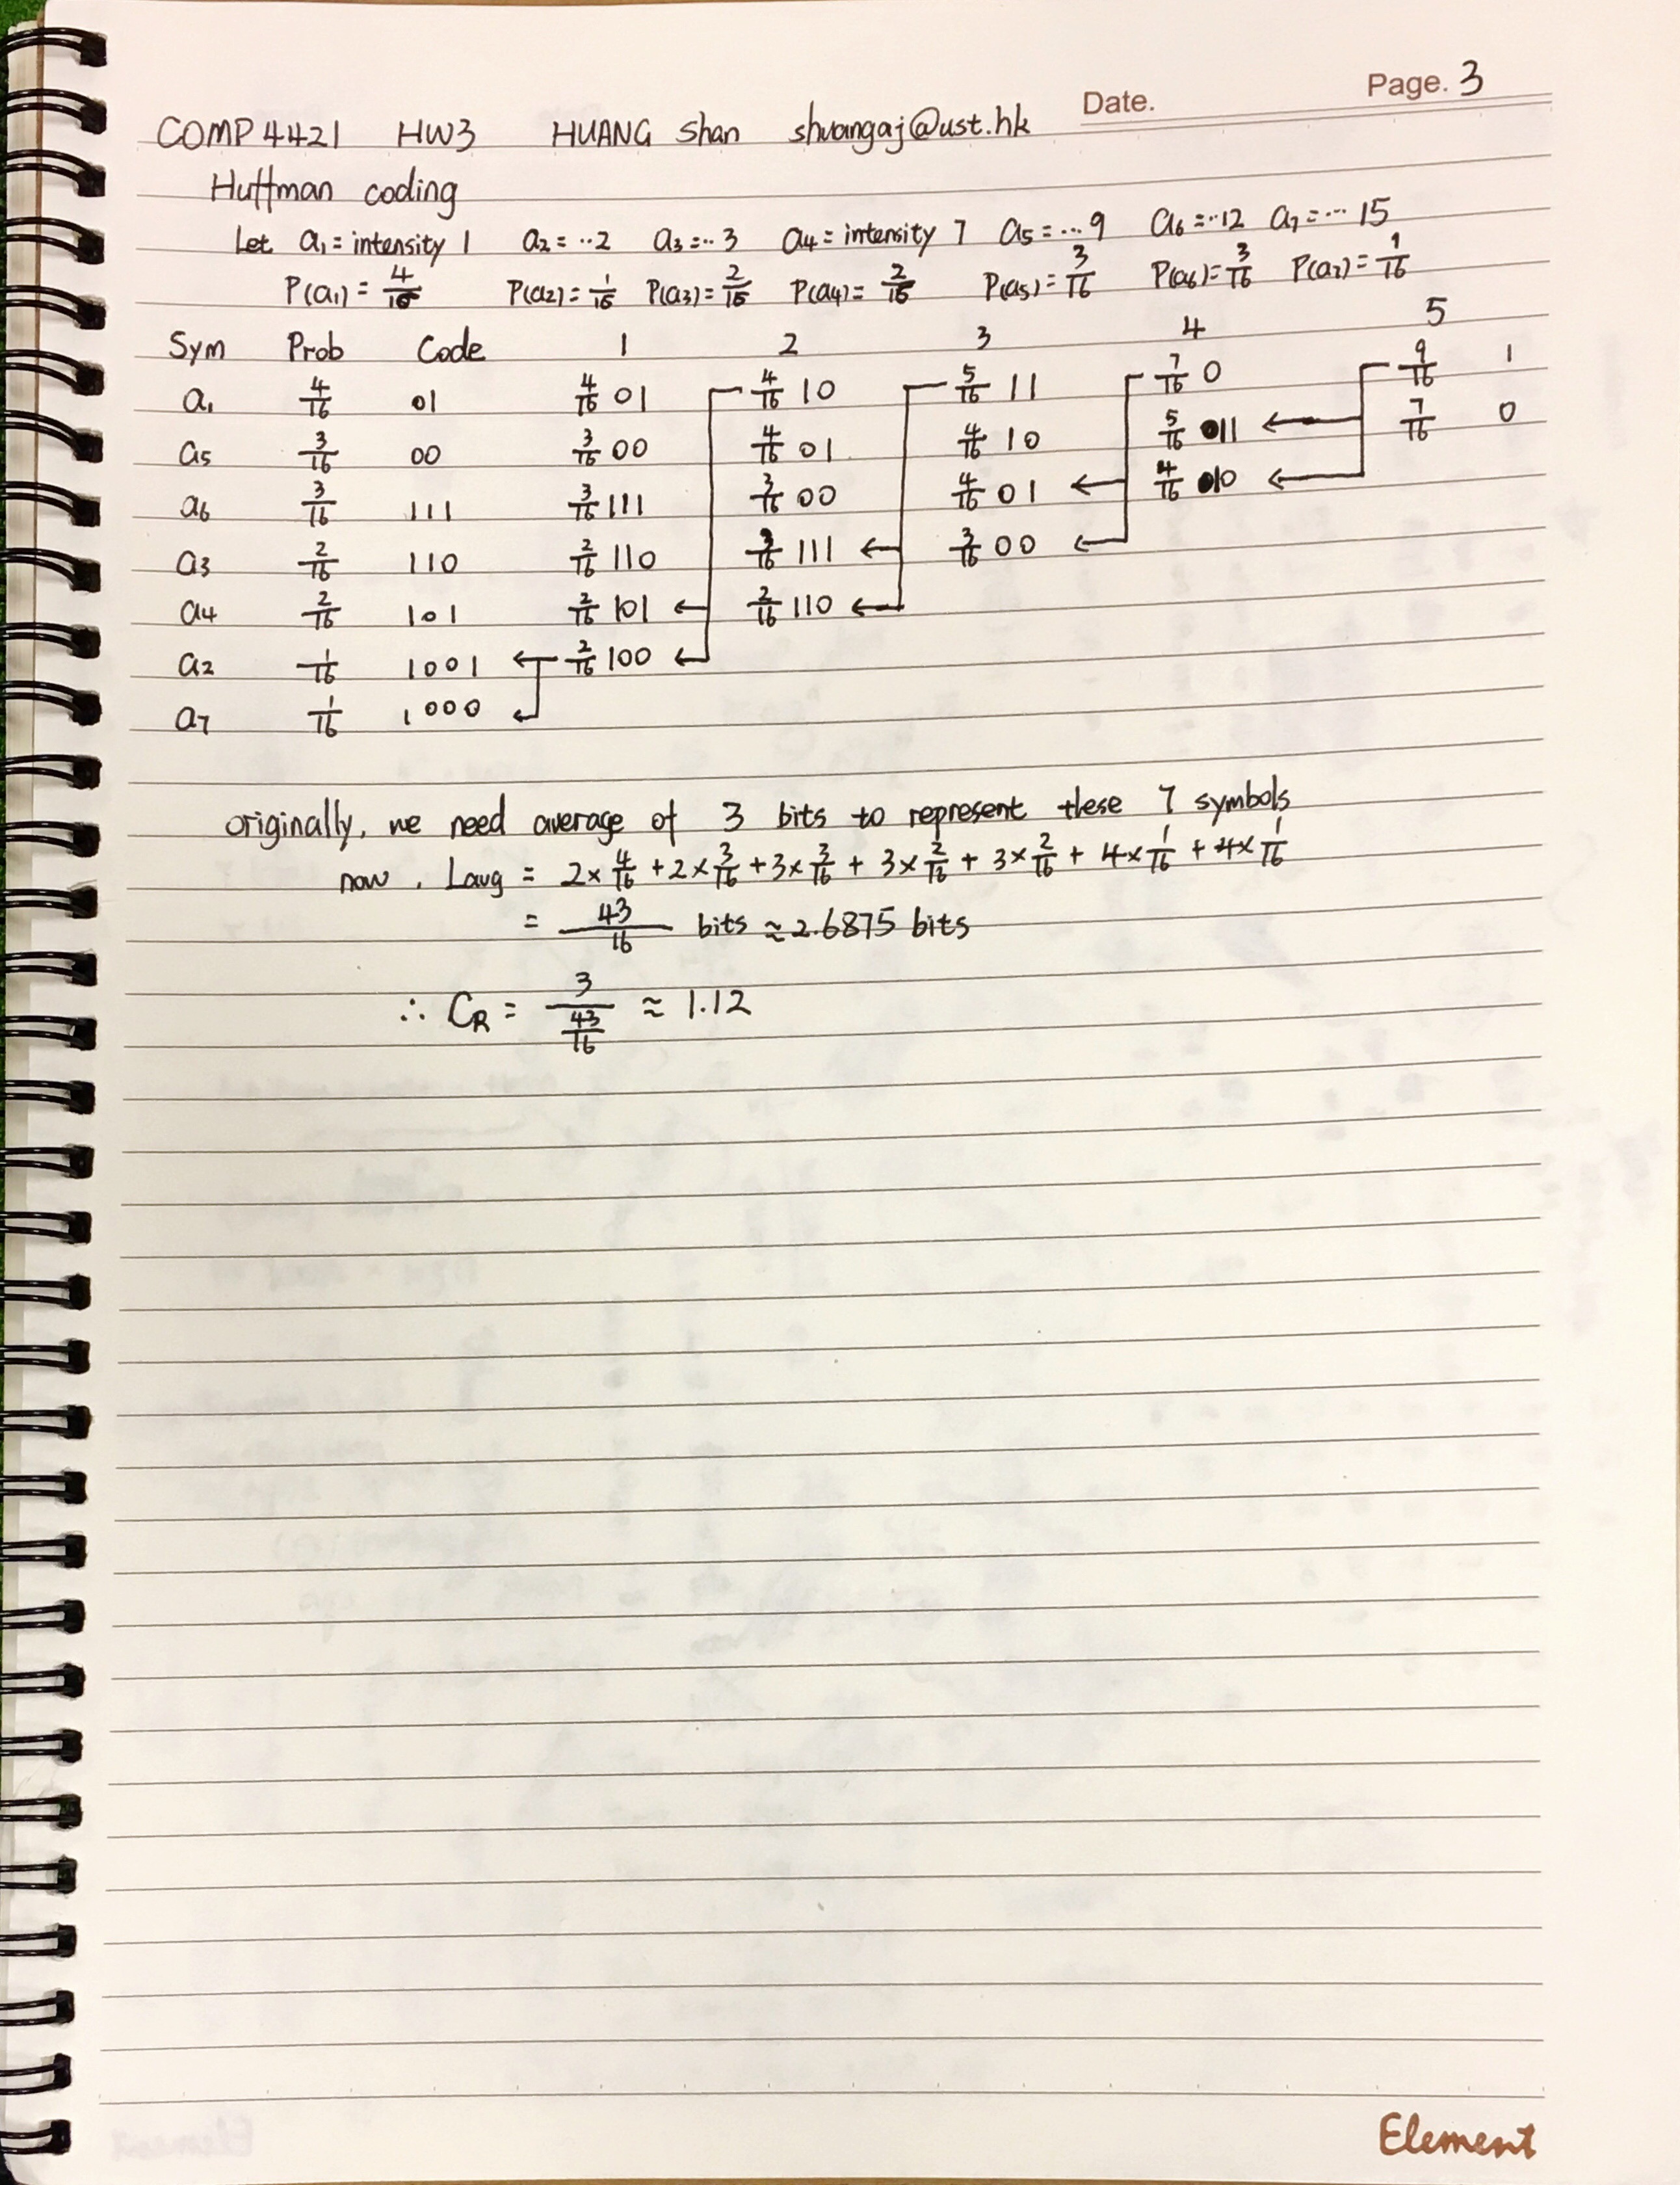 Date. Page. 3
COMP4421 HW3 HUANG Shan shuangaj@ust.hk
Huffman coding
Let a₁ = intensity 1 a₂ = ...2 a₃ = ...3 a₄ = intensity 7 a₅ = ...9 a₆ = ...12 a₇ = ...15
P(a₁) = 4/16 P(a₂) = 1/16 P(a₃) = 2/16 P(a₄) = 2/16 P(a₅) = 3/16 P(a₆) = 3/16 P(a₇) = 1/16
Sym Prob Code 1 2 3 4 5
a₁ 4/16 01 4/16 01 4/16 10 5/16 11 7/16 0 9/16 1
a₅ 3/16 00 3/16 00 4/16 01 4/16 10 5/16 11 7/16 0
a₆ 3/16 111 3/16 111 3/16 00 4/16 01 4/16 10
a₃ 2/16 110 2/16 110 3/16 111 3/16 00
a₄ 2/16 101 2/16 101 2/16 110
a₂ 1/16 1001 2/16 100
a₇ 1/16 1000
originally, we need average of 3 bits to represent these 7 symbols
now, Lavg = 2×4/16 + 2×3/16 + 3×3/16 + 3×2/16 + 3×2/16 + 4×1/16 + 4×1/16
= 43/16 bits ≈ 2.6875 bits
∴ C_R = 3/(43/16) ≈ 1.12
Element